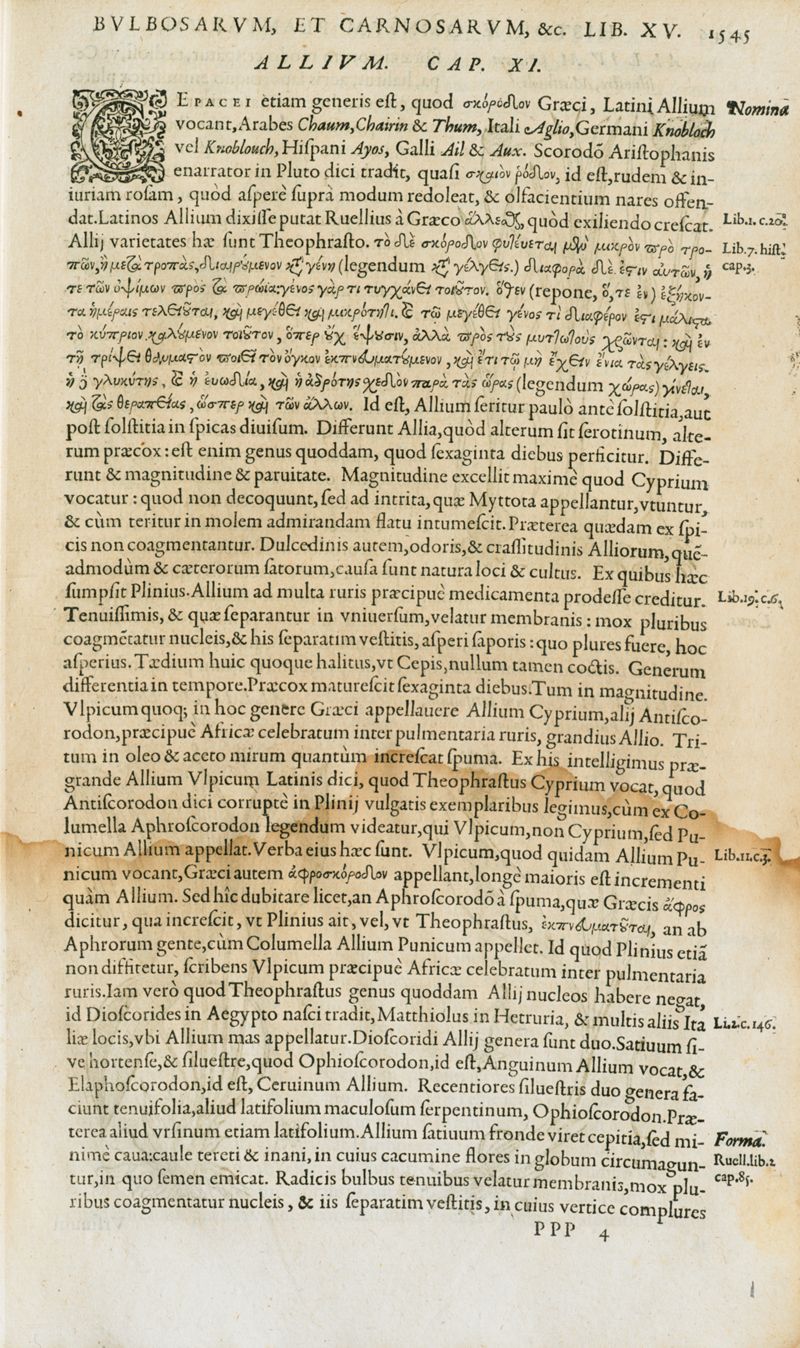 BVLBOSARVM, ET CARNOSARVM, &c. LIB. XV. 1545
ALLIVM. CAP. XI.
CEPACEI etiam generis eſt, quod σκόροδον Græci, Latini Allium Nomina
vocant, Arabes Chaum, Chairin & Thum, Itali Aglio, Germani Knobloch
vel Knoblouch, Hiſpani Ayos, Galli Ail & Aux. Scorodõ Ariſtophanis
enarrator in Pluto dici tradit, quaſi σκαιὸν ῥόδον, id eſt, rudem & in-
iuriam roſam, quòd aſperè ſuprà modum redoleat, & olfacientium nares offen-
dat. Latinos Allium dixiſſe putat Ruellius à Græco ἄλλεϑζ, quòd exiliendo creſcat. Lib.1.c.20.
Allij varietates hæ ſunt Theophraſto. τὸ δὲ σκόροδον φυτεύεται μὲν μικρὸν πρὸ τρο- Lib.7.hiſt.
πῶν, ἢ μετὰ τροπὰς, διαιρούμενον καὶ γένη (legendum καὶ γέλγεις.) διαφορὰ δέ ἐστιν αὐτῶν, ἥ cap.3.
τε τῶν ὀψίμων πρὸς τὰ πρώια: γένος γὰρ τι τυγχάνει τοιοῦτον. ὅθεν (repone, ὅ, τε ἐν) ἑξήκον-
τα ἡμέραις τελειοῦται, καὶ μεγέθει καὶ μικρότητι. καὶ τῷ μεγέθει γένος τὶ διαφέρον ἐστι μάλιστα
τὸ κύπριον καλούμενον τοιοῦτον, ὅπερ οὐχ ἕψουσιν, ἀλλὰ πρὸς τοὺς μυττωτοὺς χρῶνται: καὶ ἐν
τῇ τρίψει θαυμαστὸν ποιεῖ τὸν ὄγκον ἐκπνευματούμενον, καὶ ἔτι τῷ μὴ ἔχειν ἔνια τὰς γέλγεις.
ἡ δὲ γλυκύτης, καὶ ἡ εὐωδία, καὶ ἡ ἁδρότης σχεδὸν παρὰ τὰς ὥρας (legendum χώρας) γίνεται,
καὶ τὰς θεραπείας, ὥσπερ καὶ τῶν ἄλλων. Id eſt, Allium ſeritur paulò ante ſolſtitia, aut
poſt ſolſtitia in ſpicas diuiſum. Differunt Allia, quòd alterum ſit ſerotinum, alte-
rum præcox: eſt enim genus quoddam, quod ſexaginta diebus perficitur. Diffe-
runt & magnitudine & paruitate. Magnitudine excellit maximè quod Cyprium
vocatur: quod non decoquunt, ſed ad intrita, quæ Myttota appellantur, vtuntur,
& cùm teritur in molem admirandam flatu intumeſcit. Præterea quædam ex ſpi-
cis non coagmentantur. Dulcedinis autem, odoris, & craſſitudinis Alliorum, quẽ-
admodùm & cæterorum ſatorum, cauſa ſunt natura loci & cultus. Ex quibus hæc
ſumpſit Plinius. Allium ad multa ruris præcipuè medicamenta prodeſſe creditur. Lib.19.c.6.
Tenuiſſimis, & quæ ſeparantur in vniuerſum, velatur membranis: mox pluribus
coagmẽtatur nucleis, & his ſeparatim veſtitis, aſperi ſaporis: quo plures fuere, hoc
aſperius. Tædium huic quoque halitus, vt Cepis, nullum tamen coctis. Generum
differentia in tempore. Præcox matureſcit ſexaginta diebus. Tum in magnitudine.
Vlpicum quoq; in hoc genere Græci appellauere Allium Cyprium, alij Antiſco-
rodon, præcipuè Africæ celebratum inter pulmentaria ruris, grandius Allio. Tri-
tum in oleo & aceto mirum quantùm increſcat ſpuma. Ex his intelligimus præ-
grande Allium Vlpicum Latinis dici, quod Theophraſtus Cyprium vocat, quod
Antiſcorodon dici corruptè in Plinij vulgatis exemplaribus legimus, cùm ex Co-
lumella Aphroſcorodon legendum videatur, qui Vlpicum, non Cyprium, ſed Pu-
nicum Allium appellat. Verba eius hæc ſunt. Vlpicum, quod quidam Allium Pu- Lib.11.c.3.
nicum vocant, Græci autem ἀφροσκόροδον appellant, longè maioris eſt incrementi
quàm Allium. Sed hîc dubitare licet, an Aphroſcorodõ à ſpuma, quæ Græcis ἄφρος
dicitur, qua increſcit, vt Plinius ait, vel, vt Theophraſtus, ἐκπνευματοῦται, an ab
Aphrorum gente, cùm Columella Allium Punicum appellet. Id quod Plinius etiã
non diffitetur, ſcribens Vlpicum præcipuè Africæ celebratum inter pulmentaria
ruris. Iam verò quod Theophraſtus genus quoddam Allij nucleos habere negat,
id Dioſcorides in Aegypto naſci tradit, Matthiolus in Hetruria, & multis aliis Ita Li.2.c.146.
liæ locis, vbi Allium mas appellatur. Dioſcoridi Allij genera ſunt duo. Satiuum ſi-
ve hortenſe, & ſilueſtre, quod Ophioſcorodon, id eſt, Anguinum Allium vocat, &
Elaphoſcorodon, id eſt, Ceruinum Allium. Recentiores ſilueſtris duo genera fa-
ciunt tenuifolia, aliud latifolium maculoſum ſerpentinum, Ophioſcorodon. Præ-
terea aliud vrſinum etiam latifolium. Allium ſatiuum fronde viret cepitia, ſed mi- Forma.
nimè caua: caule tereti & inani, in cuius cacumine flores in globum circumagun- Ruell.lib.2
tur, in quo ſemen emicat. Radicis bulbus tenuibus velatur membranis, mox plu- cap.85.
ribus coagmentatur nucleis, & iis ſeparatim veſtitis, in cuius vertice complures
PPP 4